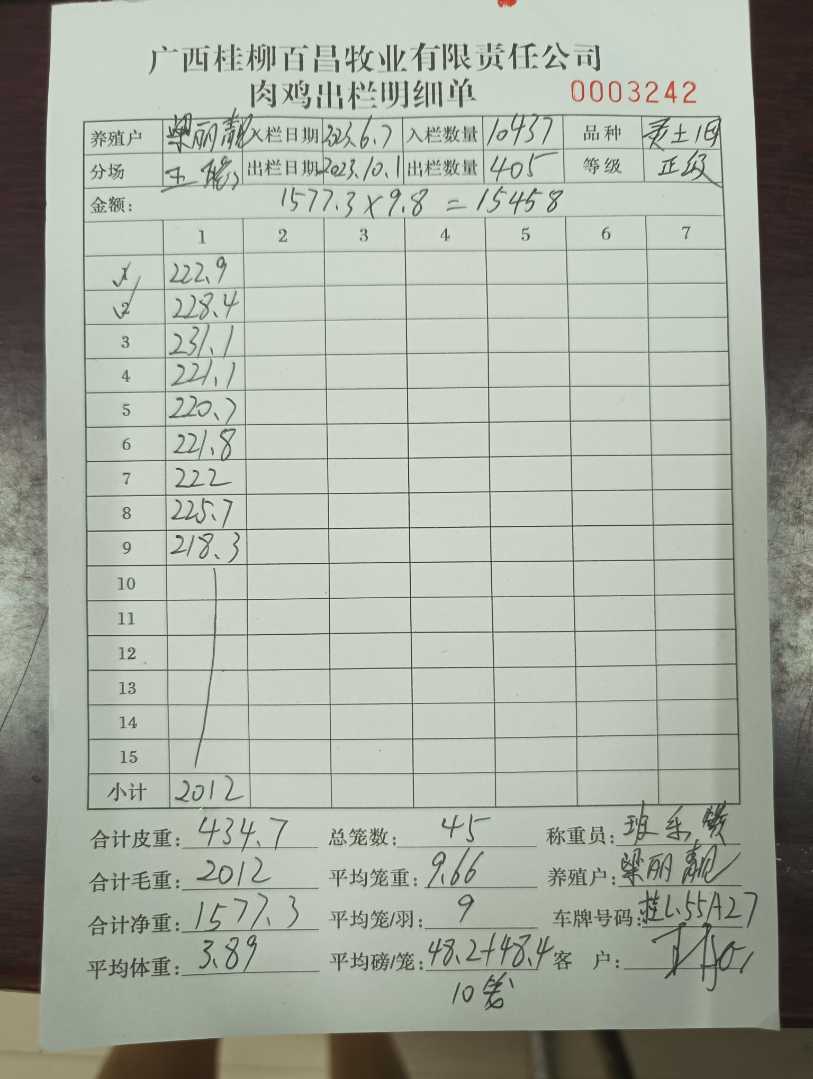 广西桂柳百昌牧业有限责任公司
肉鸡出栏明细单 0003242
养殖户 梁丽靓 入栏日期 2023.6.7 入栏数量 10437 品种 灵土1号
分场 出栏日期 2023.10.1 出栏数量 405 等级 正级
金额: 1577.3×9.8=15458
1 2 3 4 5 6 7
1 222.9
2 228.4
3 231.1
4 221.1
5 220.7
6 221.8
7 222
8 225.7
9 218.3
10
11
12
13
14
15
小计 2012
合计皮重: 434.7 总笼数: 45 称重员:
合计毛重: 2012 平均笼重: 9.66 养殖户: 梁丽靓
合计净重: 1577.3 平均笼/羽: 9 车牌号码: 桂L55A27
平均体重: 3.89 平均磅/笼: 48.2+48.4 客 户:
10笼